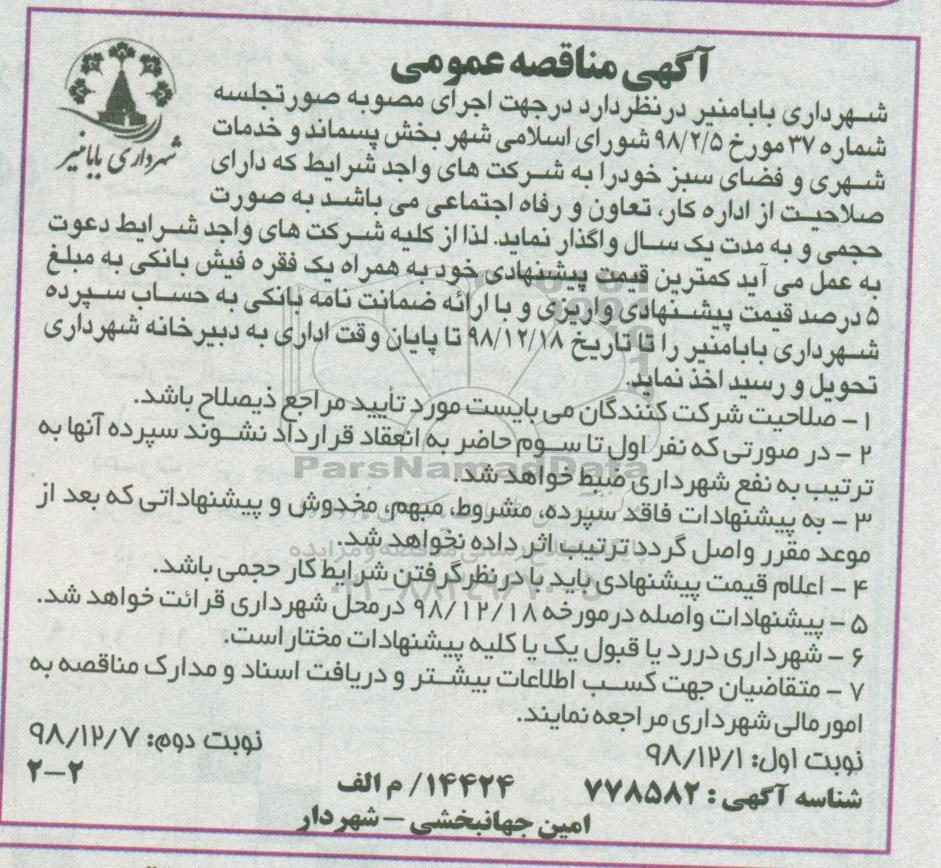 آگهی مناقصه عمومی
شهرداری بابامنیر
شهرداری بابامنیر درنظردارد درجهت اجرای مصوبه صورتجلسه
شماره ۳۷ مورخ ۹۸/۲/۵ شورای اسلامی شهر بخش پسماند و خدمات
شهری و فضای سبز خودرا به شرکت های واجد شرایط که دارای
صلاحیت از اداره کار، تعاون و رفاه اجتماعی می باشد به صورت
حجمی و به مدت یک سال واگذار نماید. لذا از کلیه شرکت های واجد شرایط دعوت
به عمل می آید کمترین قیمت پیشنهادی خود به همراه یک فقره فیش بانکی به مبلغ
۵ درصد قیمت پیشنهادی واریزی و با ارائه ضمانت نامه بانکی به حساب سپرده
شهرداری بابامنیر را تا تاریخ ۹۸/۱۲/۱۸ تا پایان وقت اداری به دبیرخانه شهرداری
تحویل و رسید اخذ نماید.
۱ - صلاحیت شرکت کنندگان می بایست مورد تأیید مراجع ذیصلاح باشد.
۲ - در صورتی که نفر اول تا سوم حاضر به انعقاد قرارداد نشوند سپرده آنها به
ترتیب به نفع شهرداری ضبط خواهد شد.
ParsNamadData
۳ - به پیشنهادات فاقد سپرده، مشروط، مبهم، مخدوش و پیشنهاداتی که بعد از
موعد مقرر واصل گردد ترتیب اثر داده نخواهد شد.
۴ - اعلام قیمت پیشنهادی باید با درنظرگرفتن شرایط کار حجمی باشد.
۵ - پیشنهادات واصله درمورخه ۹۸/۱۲/۱۸ درمحل شهرداری قرائت خواهد شد.
۶ - شهرداری دررد یا قبول یک یا کلیه پیشنهادات مختاراست.
۷ - متقاضیان جهت کسب اطلاعات بیشتر و دریافت اسناد و مدارک مناقصه به
امورمالی شهرداری مراجعه نمایند.
نوبت اول: ۹۸/۱۲/۱ نوبت دوم: ۹۸/۱۲/۷
شناسه آگهی : ۷۷۸۵۸۲ ۱۴۴۲۴/ م الف ۲-۲
امین جهانبخشی - شهردار